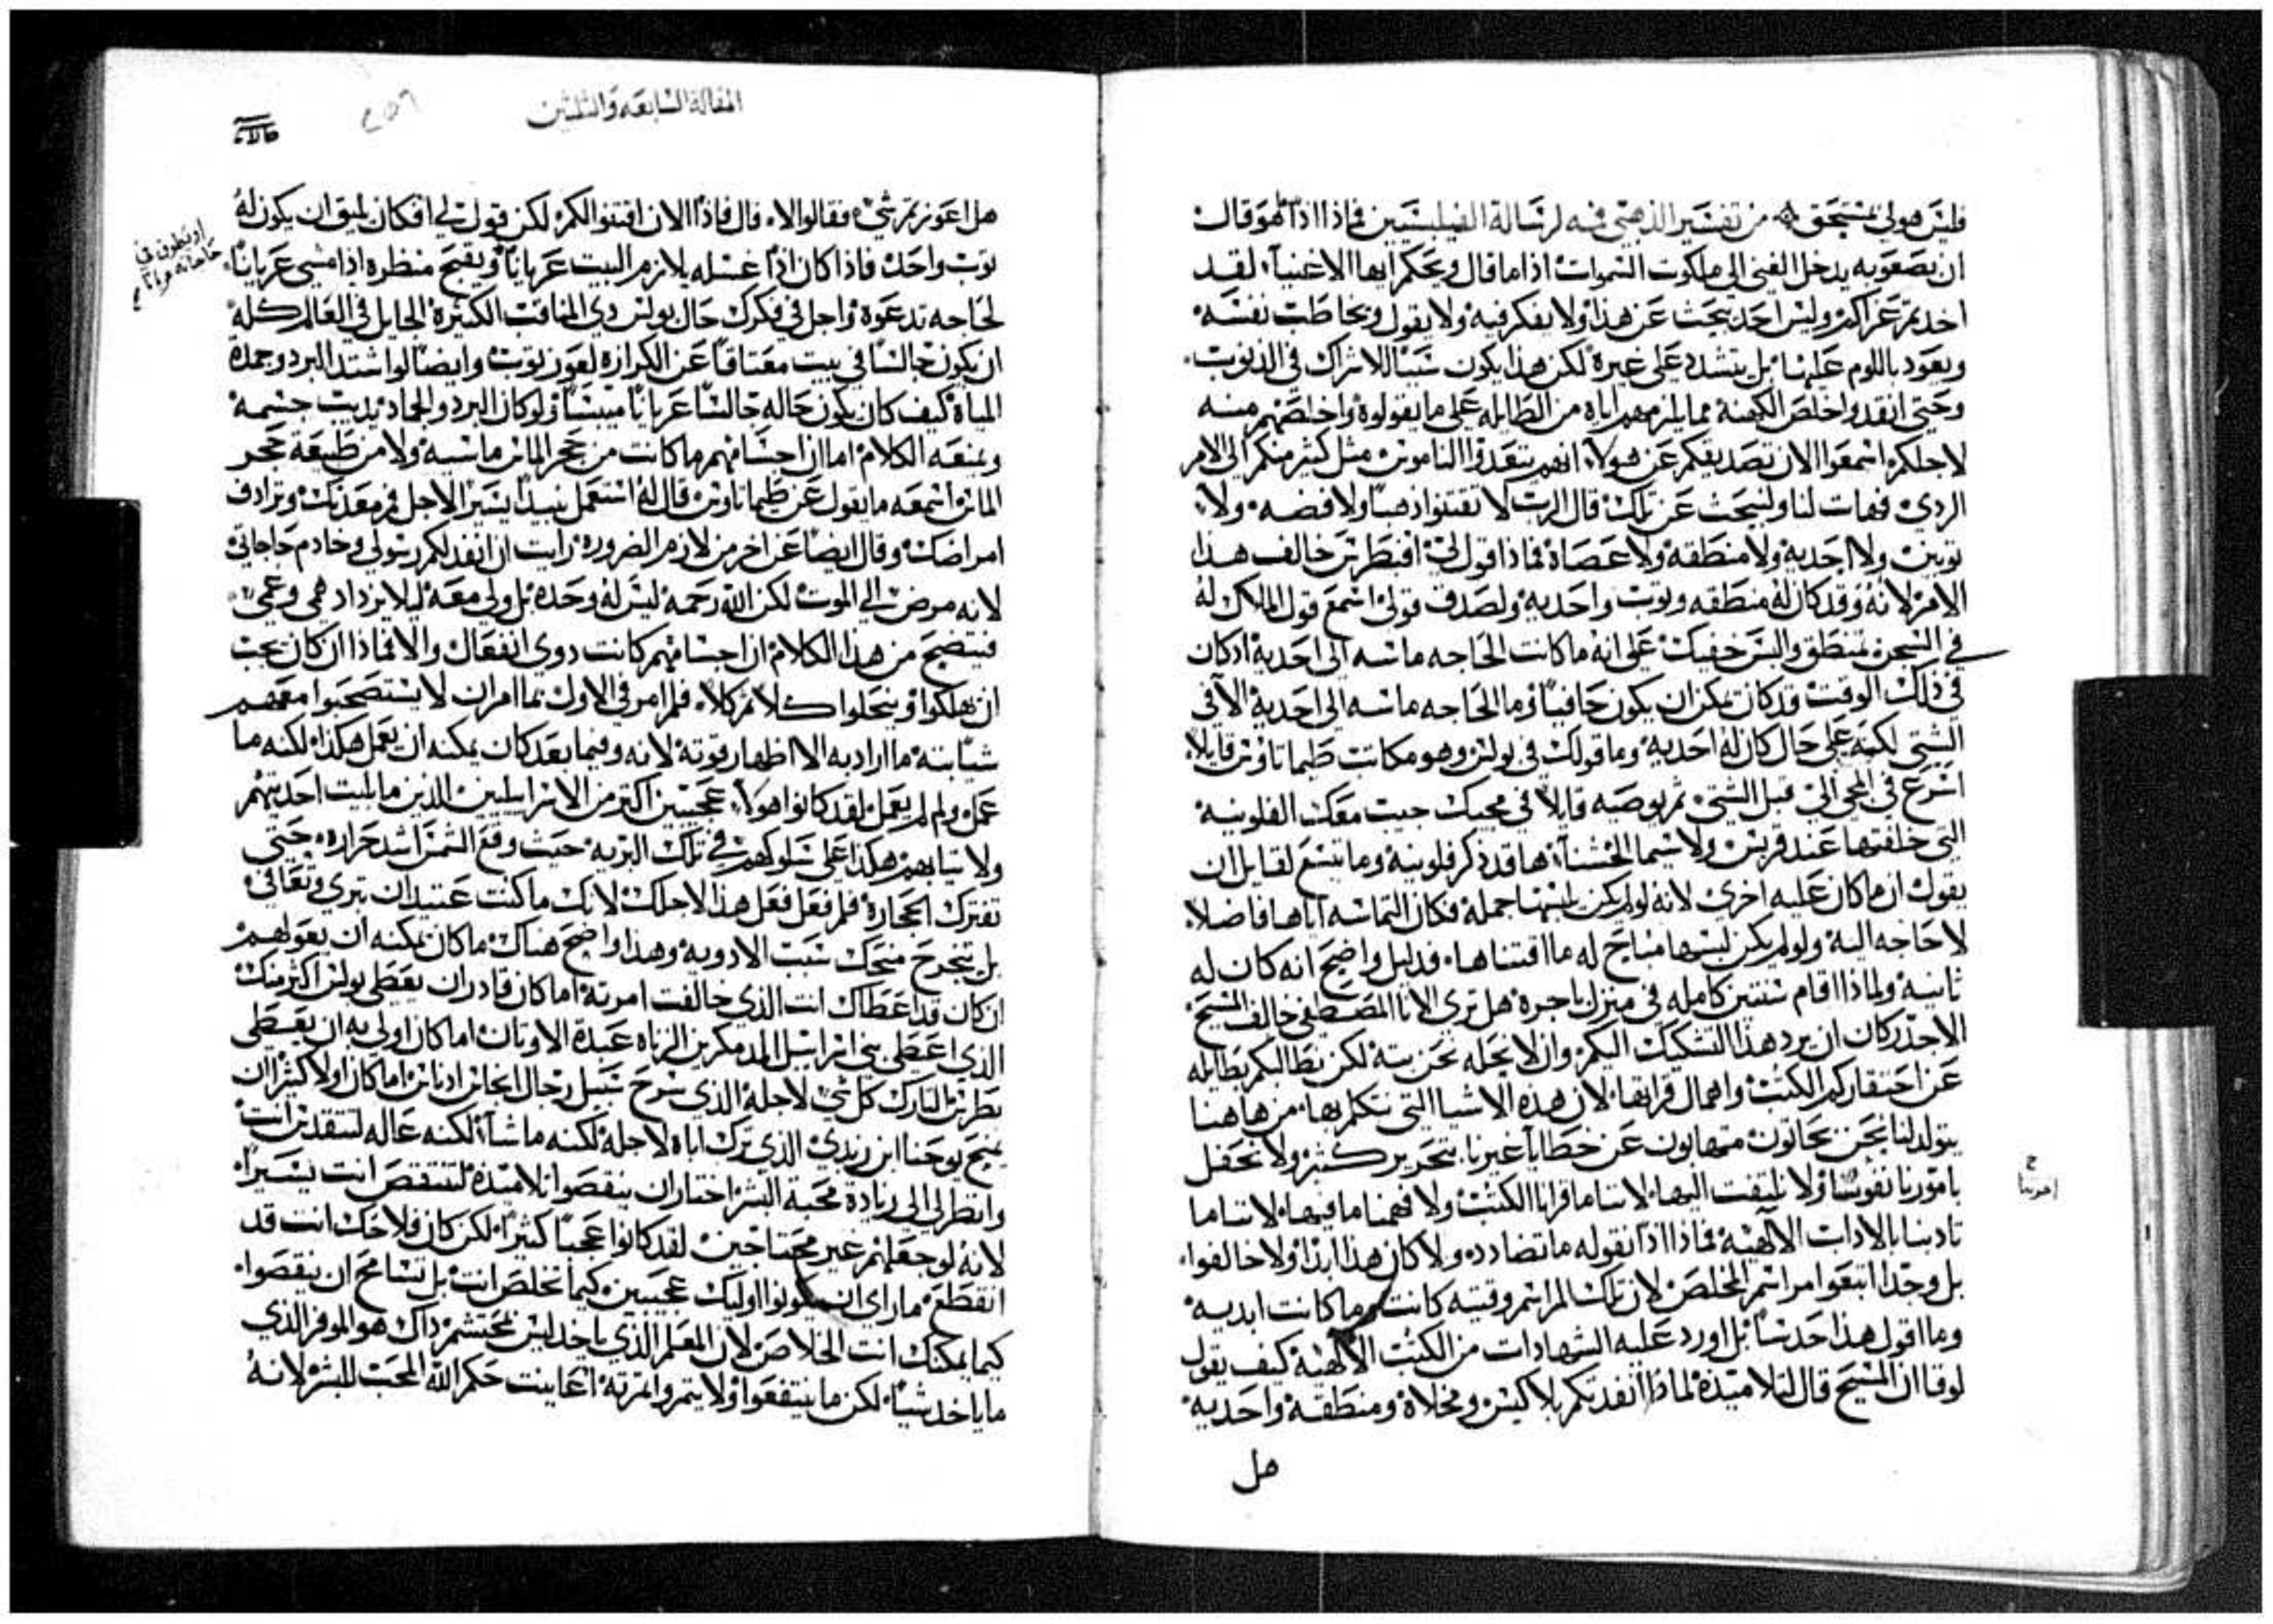 فليس هولي بمستحق من تفسير الذهبي فمه لرسالة الفيلبسيين فماذا اذا هو قال
ان بصعوبه يدخل الغني الى ملكوت السموات اذا ما قال ويحكم ايها الاغنيآء لقد
اخدتم عزاكم وليس احد يبحث عن هذا ولا يفكر فيه ولا يقول ويخاطب نفسه
ويعود باللوم عليها بل يتشدد على غيره لكن هذا يكون سببًا للاشراك في الذنوب
وحتى انقد واخلص الكهنة مما يلزمهم اياه من الطايله على ما يقولوه واخلصهم منه
لاجلكم اسمعوا الان تصديقكم عن هولاء انهم يتعدوا الناموس مثل كثير منكم الى الامر
الردي فهات لنا ولنبحث عن تلك قال الرب لا تقتنوا ذهبًا ولا فضه ولا
توبين ولا احديه ولا منطقه ولا عصاة فماذا قول لي افبطرس خالف هذا
الامر لانه وقد كان له منطقه وتوب واحديه ولصدق قولي اسمع قول الملاك له
في السجن تمنطق والبس خفيك على انه ما كانت الحاجه ماسه الى احدية اد كان
في ذلك الوقت قد كان يمكن ان يكون حافيًا وما الحاجه ماسه الى احدية الا في
الشتي لكنه على حال كان له احديه وما قولك في بولس وهو مكاتب طيماتاوس قايلًا
اسرع في المجي الي قبل الشتي ثم يوصيه قايلًا في مجيك جيب معك الفلونية
التي خلفتها عند قربس ولا سيما الخشنآء ها قد ذكر فلونية وما يتسع لقايل ان
يقول ان ما كان عليه اخرى لانه لو لم يكن يلبسها جملة فكان التماسه اياها فاضلًا
لا حاجه اليه ولو لم يكن لبسها مباح له ما اقتناها فدليل واضح انه كان له
ثانية ولماذا اقام سنتين كامله في منزل باجره هل ترى الانا المصطفى خالف المسيح
الاجدر كان ان يرد هذا التشكيك اليكم وان لا يحله نحن بته لكن نطالبكم بطايله
عن احتقاركم الكتب واهمال قرايتها لان هذه الاشيا التي نتكلم بها من هاهنا
يتولد لنا نحن بحاتون متهابون عن خطايا غيرنا بتحرير كثير ولا نحفل
بامور نا نفوسنا ولا نلتفت اليها لاننا ما قرانا الكتب ولا فهمنا ما فيها لاننا ما
تادبنا بالادات الالاهية فماذا اذا نقوله ما تضادده ولا كان هذا ابدًا ولا خالفوا
بل وجدا اتبعوا مراسم المخلص لان تلك المراسم وقتيه كانت وما كانت ابديه
وما اقول هذا حدسًا بل اورد عليه الشهادات من الكتب الالاهية كيف يقول
لوقا ان المسيح قال لتلاميذه لما ذا انفدتكم بلا كيس ومخلاة ومنطقه واحديه
هل
امرنا
المقالة السابعه والثلثين
هل اعوزتم شي فقالوا لا قال فاذا الان اقتنوا لكم لكن قول لي افكان يليق ان يكون له
توب واحد فاذا كان اذا غسله يلازم البيت عريانًا ويقبح منظره اذا مشي عريانًا
لحاجه تدعوه واجل في فكرك حال بولس دي المناقب الكثيره الجايل في العالم كله
ان يكون جالسًا في بيت معتاقًا عن الكرازه لعوز توب وايضًا لو اشتد البرد وجمده
المياه كيف كان يكون حاله جالسًا عريانًا ميبسًا ولو كان البرد والجماد يديب جسمه
ويمنعه الكلام اما ان اجسامهم ما كانت من حجر الماس ماسيه ولا من طبيعة حجر
الماس اسمعه ما يقول عن طيماتاوس قال له استعمل نبيدًا يسيرًا لاجل فم معدتك وترادف
امراضك وقال ايضًا عن اخر من لازم الضروره رايت ان انفد لكم رسولي وخادم حاجاتي
لانه مرض الى الموت لكن الله رحمه ليس له وحده بل ولي معه ليلا يزداد همي وغمي
فيتضح من هذا الكلام ان اجسامهم كانت دوي انفعال والا فماذا ان كان يجب
ان يهلكوا وينحلوا كلا ثم كلا فلم امر في الاول لما امر ان لا يستصحبوا معهم
شيًا بته ما اراد به الا اظهار قوته لانه وفيما بعد كان يمكنه ان يعمل هكذا لكنه ما
عمل ولم لم يعمل لقد كانوا هولاء عجيبين اكثر من الاسراييليين الذين ما بليت احديتهم
ولا تيابهم هكذا على سلوكهم في تلك البريه حيث وقع الشمس اشد حراره حتى
تفترك الحجاره فلم فعل فعل هذا لاجلك لانك ما كنت عتيد ان تبري وتعافى
بل تنجرح منحك سبب الادويه وهذا واضح هناك ما كان يمكنه ان يعولهم
ان كان قد اعطاك انت الذي خالفت امرته اما كان قادر ان يعطي بولس اكثر منك
الذي اعطى بني اسراييل المدمكرين الزناه عبدة الاوتان اما كان اولى به ان يعطي
بطرس التارك كل شي لاجله الذي سرح سبيل رجال انجاس ادناس اما كان اولا كثيرًا ان
يمنح يوحنا ابن زبدي الذي ترك اباه لاجله لكنه ما شآء لكنه عاله لتنقدس انت
وانظر لي الى زيادة محبة البشر اختار ان ينقصوا تلاميذه لتنتقص انت يسيرًا
لانه لو جعلهم غير محتاجين لقد كانوا عجبًا كثيرًا لكن كان فلاحك انت قد
انقطع ما راى ان يكونوا اوليك عجيبين كيما تخلص انت بل تسامح ان ينقصوا
كيما يمكنك انت الخلاص لان المعلم الذي ياخد ليس بمحتشم داك هو الموفر الذي
ما ياخد شيًا لكن ما ينتفعوا ولا يتمروا لمرته اعاينت حكم الله المحب للبشر لانه